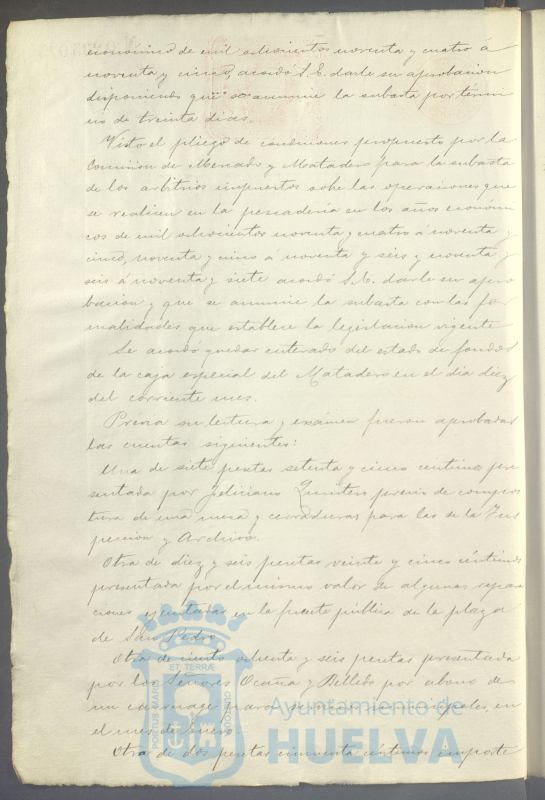 económico de mil ochocientos noventa y cuatro á
noventa y cinco, acordó S.E. darle su aprobacion
disponiendo que se anuncie la subasta por térmi
no de treinta dias.
Visto el pliego de condiciones propuesto por la
Comision de Mercado y Matadero para la subasta
de los arbitrios impuestos sobre las operaciones que
se realicen en la pescadería en los años económi
cos de mil ochocientos noventa y cuatro á noventa y
cinco, noventa y cinco a noventa y seis y noventa y
seis á noventa y siete acordó S.E. darle su apro
bacion y que se anuncie la subasta con las for
malidades que establece la legislacion vigente
Se acordó quedar enterado del estado de fondos
de la caja especial del Matadero en el dia diez
del corriente mes.
Prévia su lectura y exámen fueron aprobadas
las cuentas siguientes:
Una de siete pesetas setenta y cinco céntimos pre
sentada por Feliciano Quintero precio de compos
tura de una mesa y cerraduras para las de la Ins
peccion y Archivo.
Otra de diez y seis pesetas veinte y cinco céntimos
presentada por el mismo valor de algunas repara
ciones ejecutadas en la fuente pública de la plaza
de San Pedro
Otra de ciento ochenta y seis pesetas presentada
por los Señores Ocaña y Bellido por abono de
un carruage para servicios municipales, en
el mes de Enero.
Otra de dos pesetas cincuenta céntimos importe
PORTUS MARIS ET TERRÆ CUSTODIA
Ayuntamiento de
HUELVA